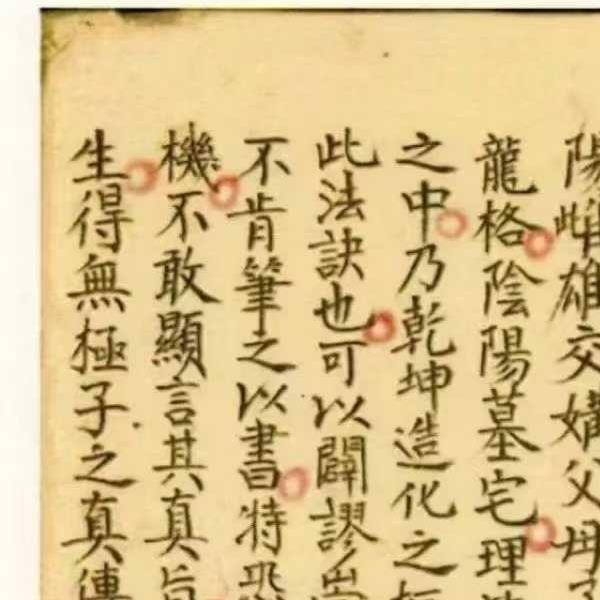 陽雌雄交媾父母
龍格陰陽墓宅理
之中乃乾坤造化之
此法訣也可以闢謬
不肯筆之以書特恐
機不敢顯言其真旨
生得無極子之真傳